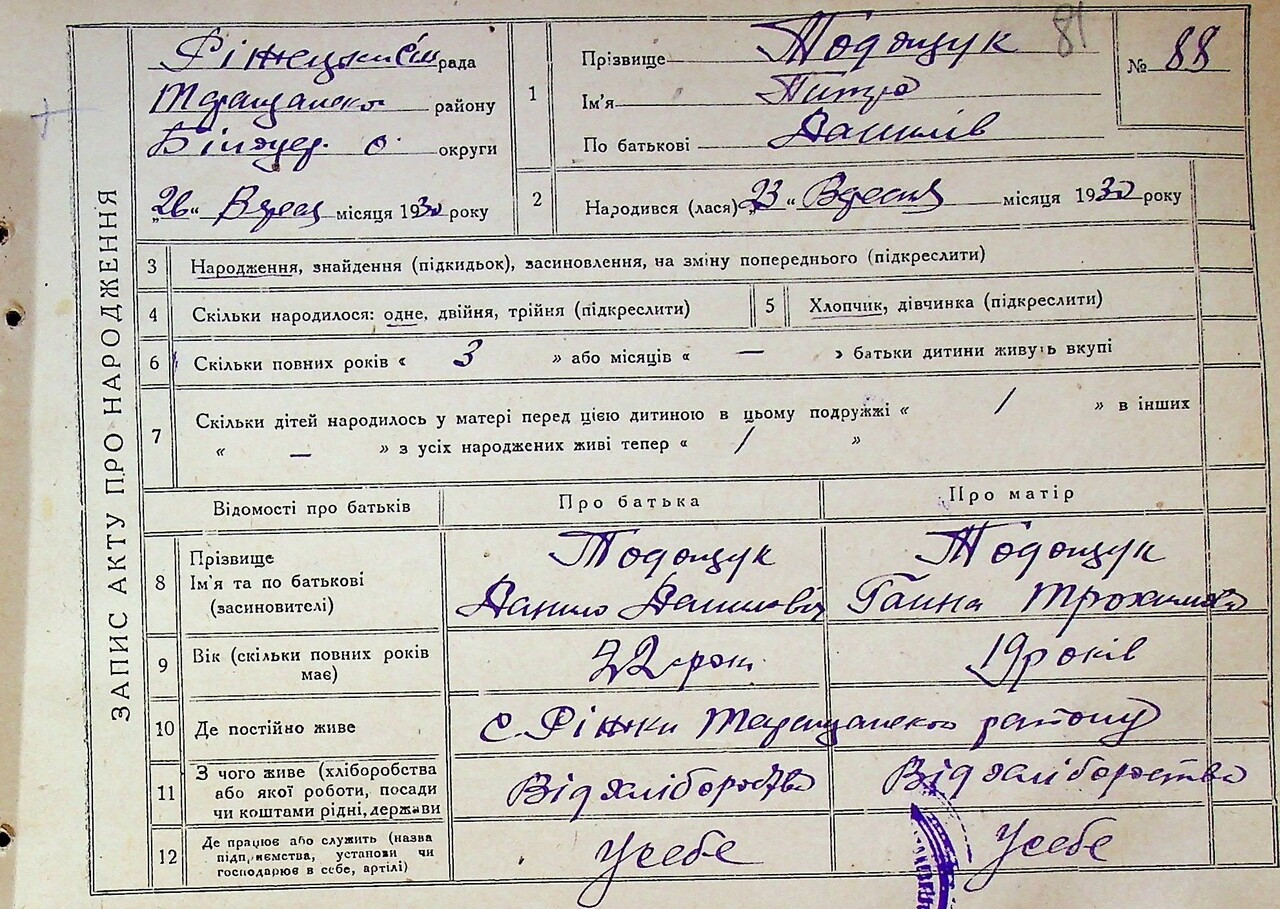 ЗАПИС АКТУ ПРО НАРОДЖЕННЯ
рада
Таращанського району
Білоцер. о. округи
„26“ Вересн місяця 1930 року
81
№ 88
1
Прізвище Тодощук
Ім'я Питро
По батькові Данилів
2
Народився (лася) „23“ Вересня місяця 1930 року
3 Народження, знайдення (підкидьок), засиновлення, на зміну попереднього (підкреслити)
4 Скільки народилося: одне, двійня, трійня (підкреслити)
5 Хлопчик, дівчинка (підкреслити)
6 Скільки повних років « 3 » або місяців « — » батьки дитини живуть вкупі
7 Скільки дітей народилось у матері перед цією дитиною в цьому подружжі « 1 » в інших
« — » з усіх народжених живі тепер « 1 »
Відомості про батьків Про батька Про матір
8 Прізвище Тодощук Тодощук
Ім'я та по батькові Данило Данилович Ганна Трохимова
(засиновителі)
9 Вік (скільки повних років 22 рок 19 років
має)
10 Де постійно живе с. Ріжки Таращанського району
11 З чого живе (хліборобства Від хліборобства Від хліборобства
або якої роботи, посади
чи коштами рідні, держави
12 Де працює або служить (назва У себе У себе
підприємства, установи чи
господарює в себе, артілі)